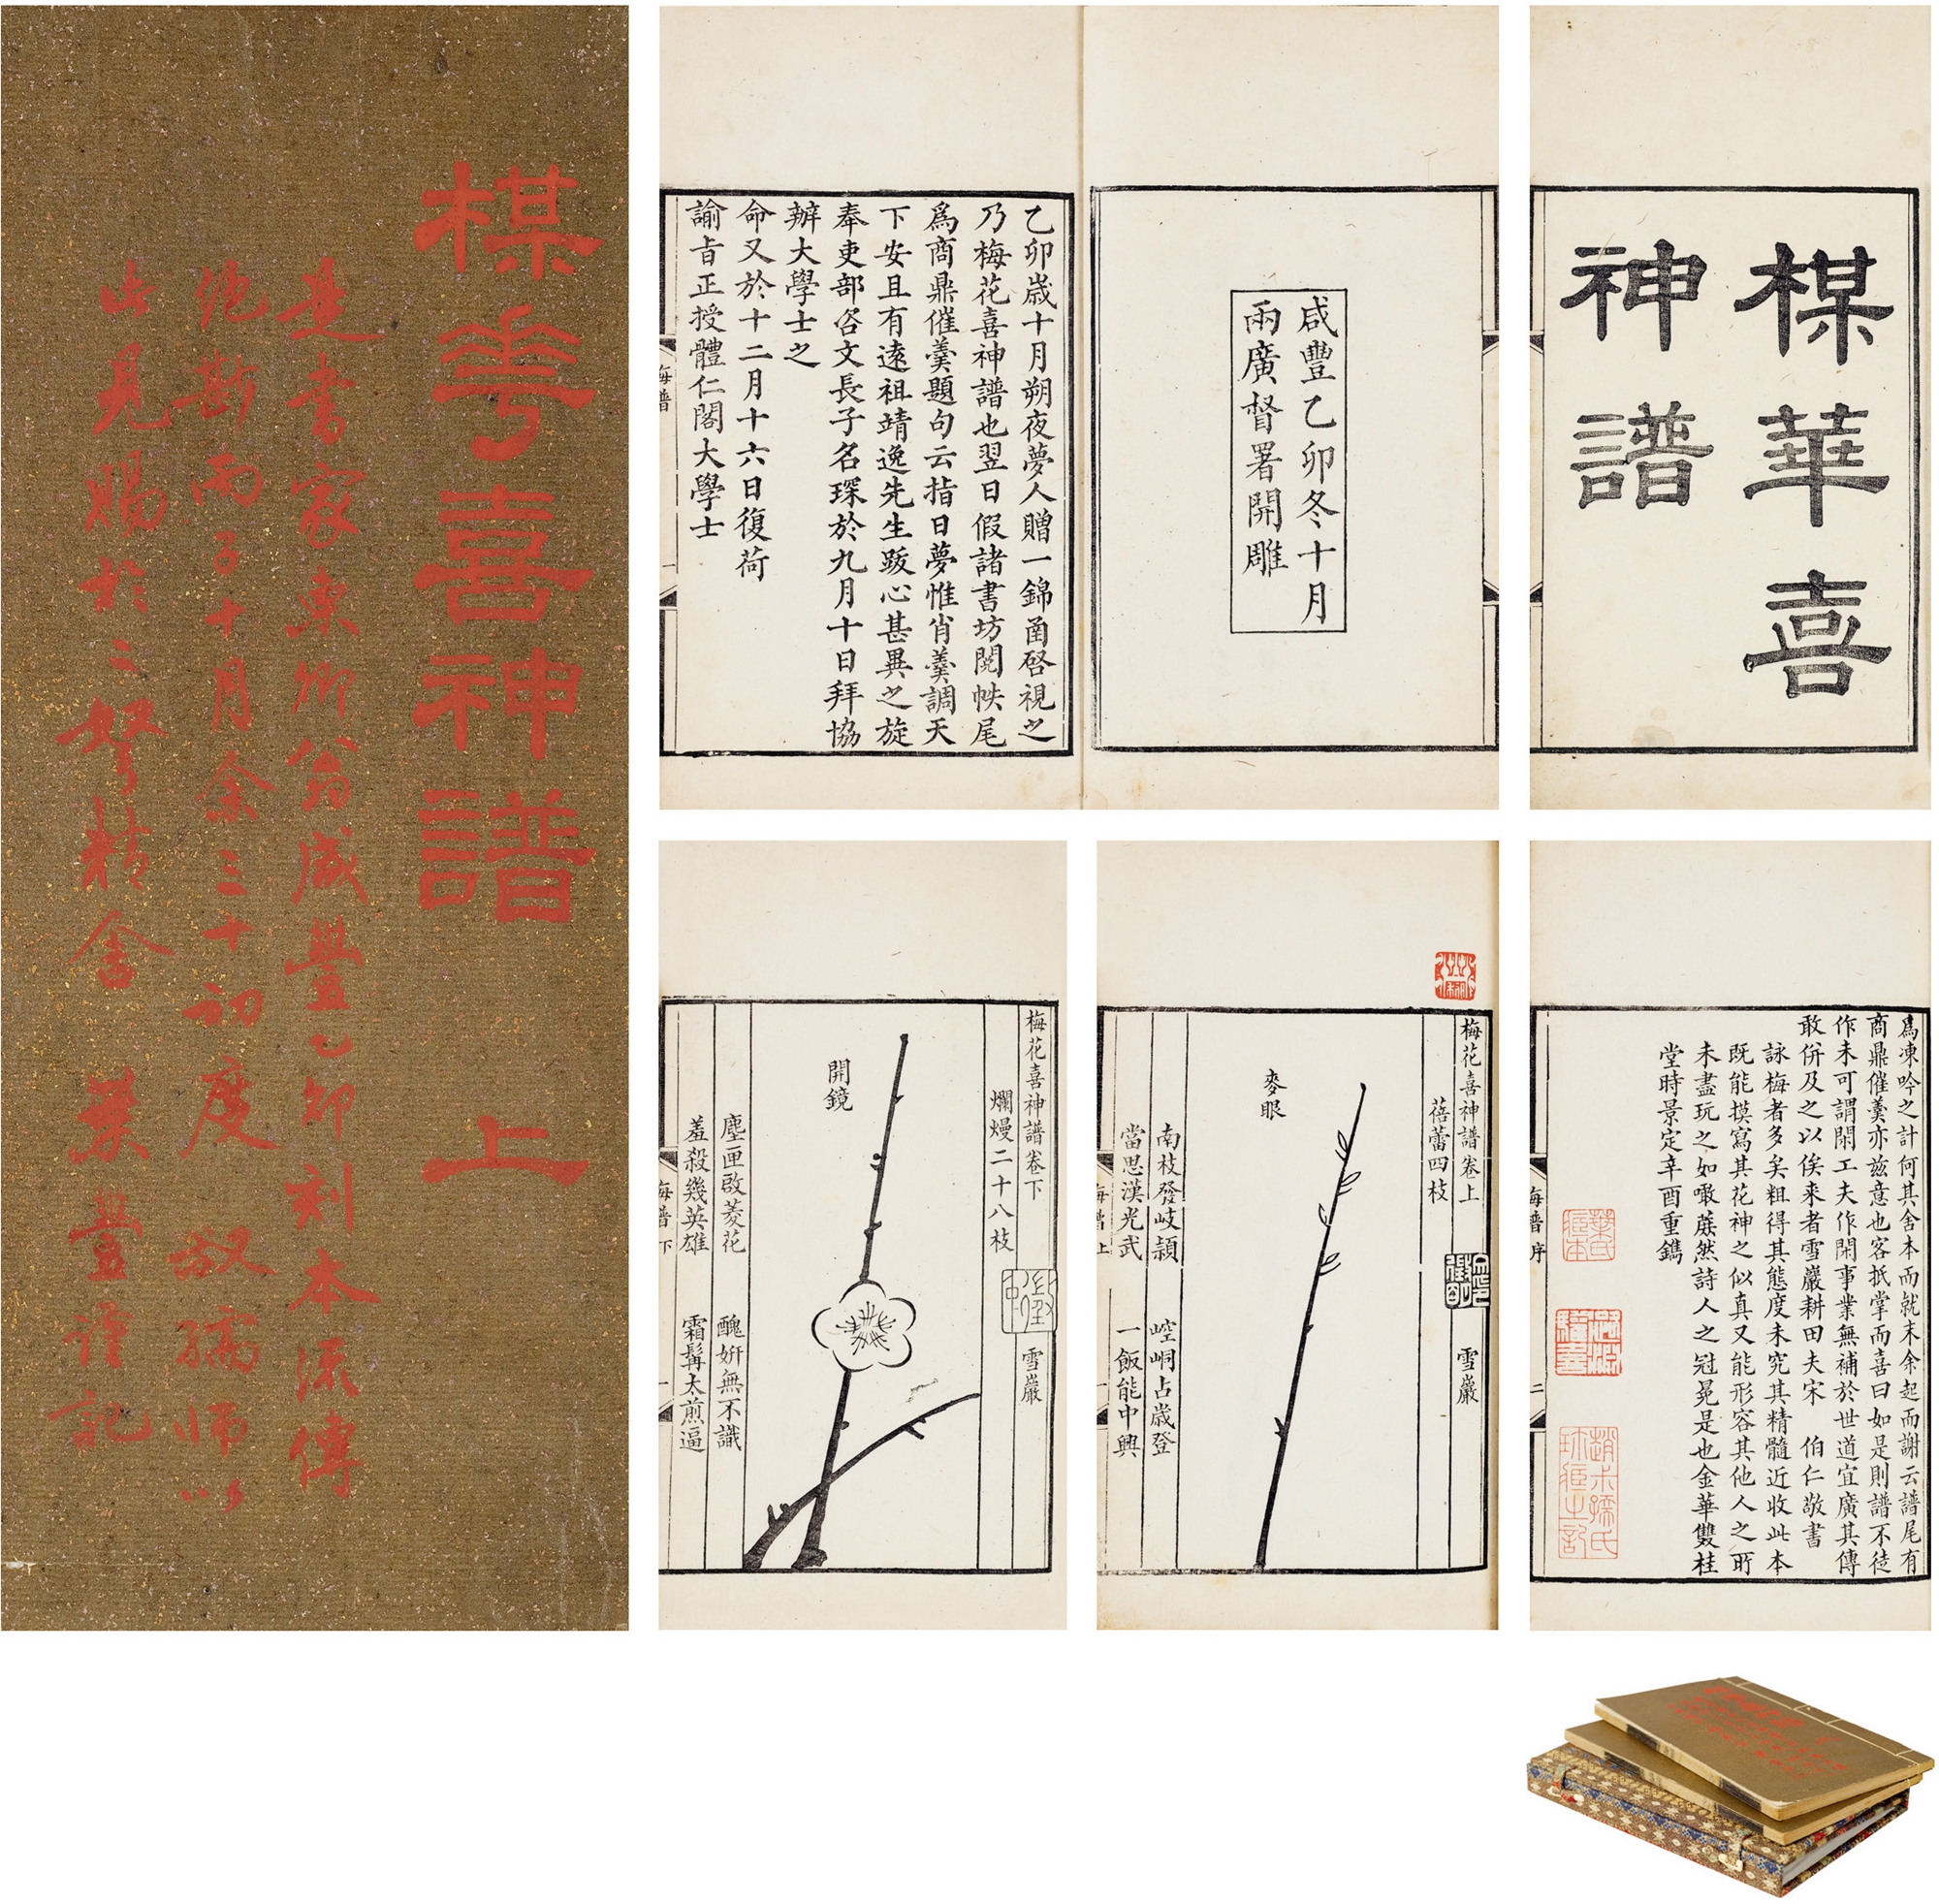 楳華喜神譜　上
是書家東卿翁咸豐乙卯刻本流傳
絕斯丙子十月余三十初度敬孺師以
此見賜於二弩精舍　葉豐謹記
楳華喜
神譜
咸豐乙卯冬十月
兩廣督署開雕
乙卯歲十月朔夜夢人贈一錦函啓視之
乃梅花喜神譜也翌日假諸書坊閱帙尾
爲商鼎催羹題句云指日夢惟肖羹調天
下安且有遠祖靖逸先生跋心甚異之旋
奉吏部咨文長子名琛於九月十日拜協
辦大學士之
命又於十二月十六日復荷
諭旨正授體仁閣大學士
梅譜
一
爲凍吟之計何其舍本而就末余起而謝云譜尾有
商鼎催羹亦茲意也客抵掌而喜曰如是則譜不徒
作未可謂閑工夫作閑事業無補於世道宜廣其傳
敢併及之以俟來者雪巖耕田夫宋　伯仁敬書
詠梅者多矣粗得其態度未究其精髓近收此本
既能摸寫其花神之似真又能形容其他人之所
未盡玩之如噉蔗然詩人之冠冕是也金華雙桂
堂時景定辛酉重鐫
梅譜序
二
梅花喜神譜卷上
雪巖
蓓蕾四枝
麥眼
南枝發岐穎
崆峒占歲登
當思漢光武
一飯能中興
梅譜上
一
梅花喜神譜卷下
雪巖
爛熳二十八枝
開鏡
塵匣啟菱花
醜姸無不識
羞殺幾英雄
霜髯太煎逼
梅譜下
一